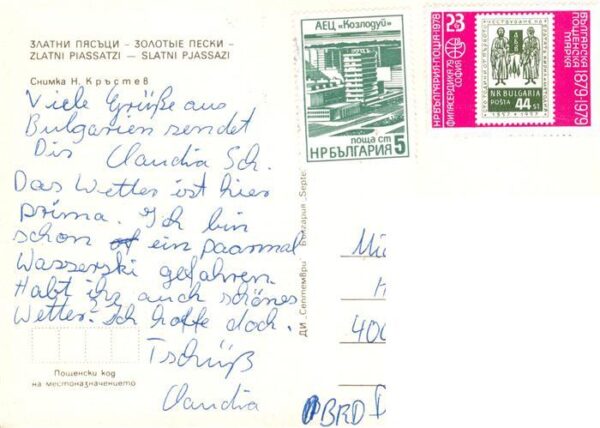 ЗЛАТНИ ПЯСЪЦИ - ЗОЛОТЫЕ ПЕСКИ -
ZLATNI PIASSATZI - SLATNI PJASSAZI
Снимка Н. Кръстев
Viele Grüße aus
Bulgarien sendet
Dir Claudia Sch.
Das Wetter ist hier
prima. Ich bin
schon ein paarmal
Wasserski gefahren.
Habt ihr auch schönes
Wetter? Ich hoffe doch.
Tschüß
Claudia
Пощенски код
на местоназначението
ДИ „Септември България Septe
АЕЦ "Козлодуй"
поща ст
НРБЪЛГАРИЯ 5
23
НР БЪЛГАРИЯ·ПОЩА·1978
ФИЛАСЕРДИКА 79
СОФИЯ
NR BULGARIA
POŠTA 44 ST.
1857 1957
БЪЛГАРСКА
ПОЩЕНСКА
МАРКА
1879-1979
Mi
400
BRD